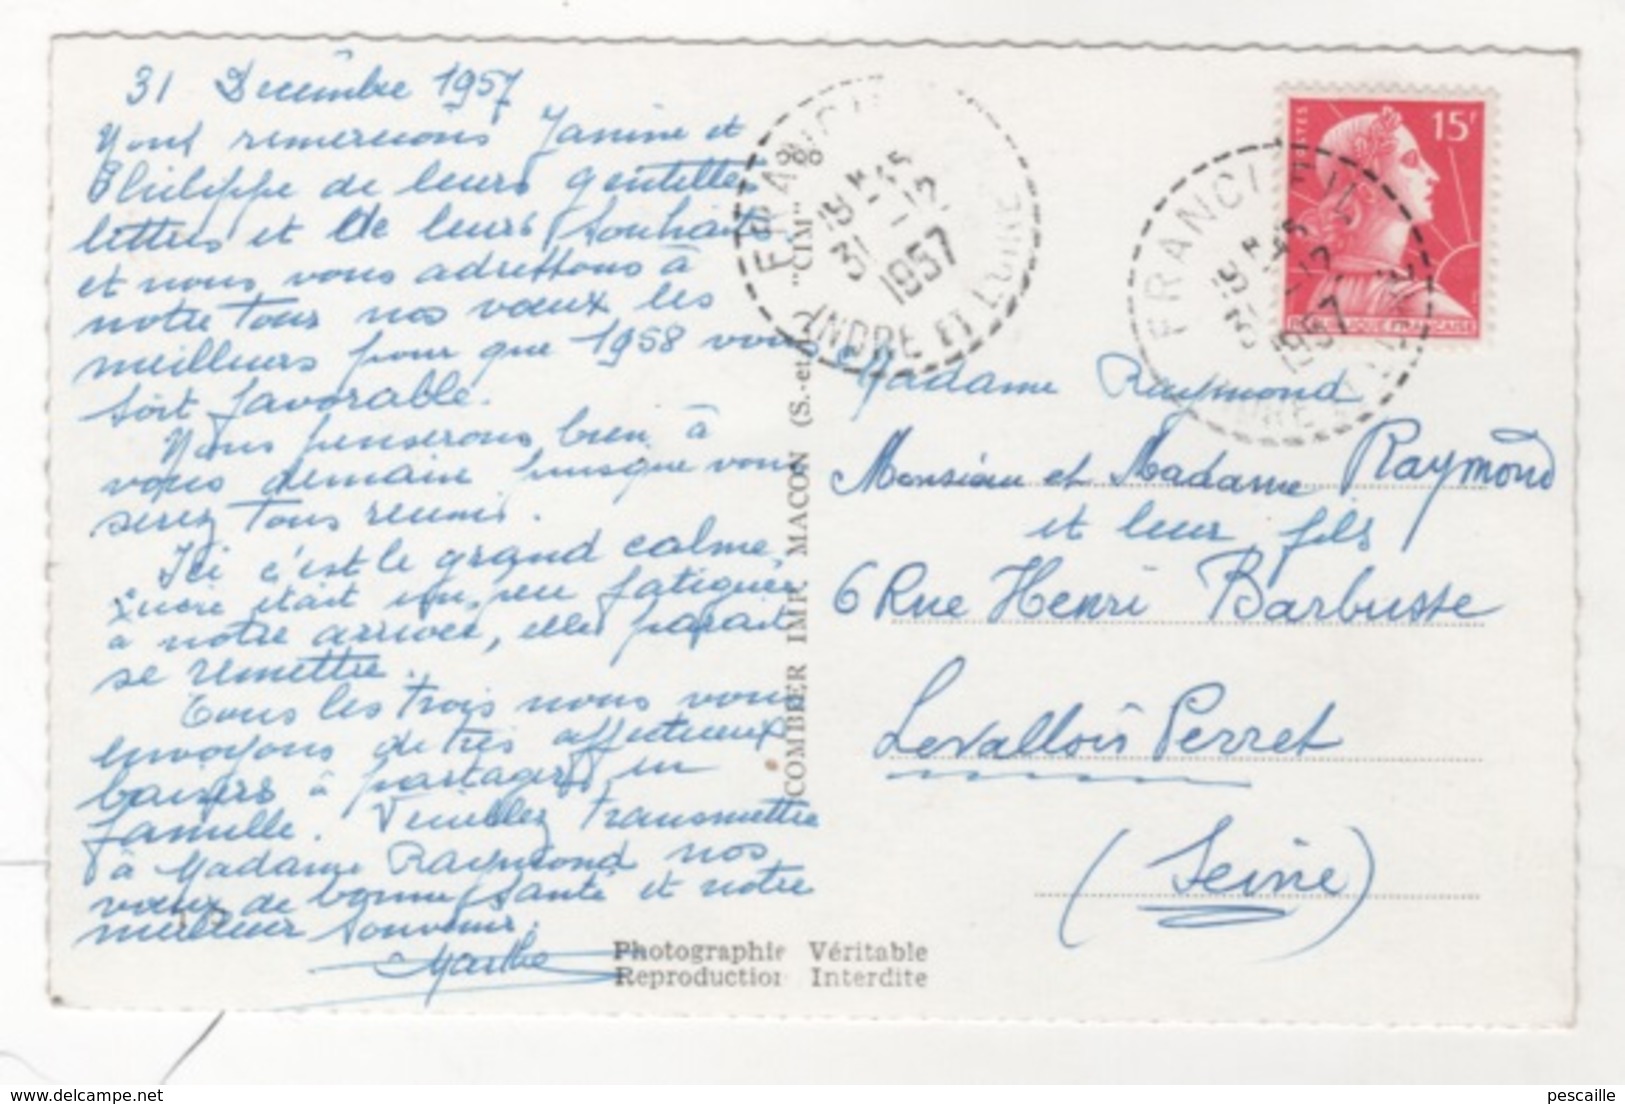 31 Decembre 1957
Nous remercions Janine et
Philippe de leurs gentilles
lettres et de leurs souhaits
et nous vous adressons à
notre tour nos vœux les
meilleurs pour que 1958 vous
soit favorable.
Nous penserons bien à
vous demain puisque vous
serez tous reunis.
Ici c'est le grand calme,
était un peu fatiguée
à notre arrivée, elle parait
se remettre.
Tous les trois nous vous
envoyons de très affectueux
baisers à partager en
famille. Veuillez transmettre
à Madame Raymond nos
vœux de bonne santé et notre
meilleur souvenir.
Marthe
COMBIER IMP. MACON (S.-et-L.) "CIM"
Photographie Véritable
Reproduction Interdite
FRANCUEIL
18 H 45
31 - 12
1957
INDRE ET LOIRE
FRANCUEIL
18 H 45
31 - 12
1957
INDRE ET LOIRE
POSTES
15F
REPUBLIQUE FRANCAISE
Madame Raymond
Monsieur et Madame Raymond
et leur fils
6 Rue Henri Barbusse
Levallois Perret
(Seine)
pescaille